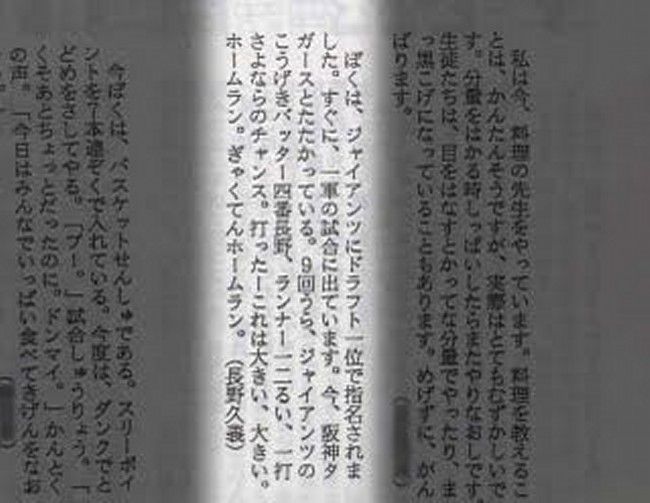 私は今、料理の先生をやっています。料理を教えるこ
とは、かんたんそうですが、実際はとてもむずかしいで
す。分量をはかる時しっぱいしたらまたやりなおしです
生徒たちは、目をはなすとかってな分量でやったり、ま
っ黒こげになっていることもあります。めげずに、がん
ばります。
ぼくは、ジャイアンツにドラフト一位で指名されま
した。すぐに、一軍の試合に出ています。今、阪神タ
ガースとたたかっている。9回うら、ジャイアンツの
こうげきバッター四番長野、ランナー一二るい、一打
さよならのチャンス。打ったーこれは大きい、大きい。
ホームラン。ぎゃくてんホームラン。(長野久義)
今ぼくは、バスケットせんしゅである。スリーポイ
ントを7本連ぞくで入れている。今度は、ダンクでと
どめをさしてやる。「ブー。」試合しゅうりょう。「
くそあとちょっとだったのに。ドンマイ。」かんとく
の声。「今日はみんなでいっぱい食べてきげんをなお